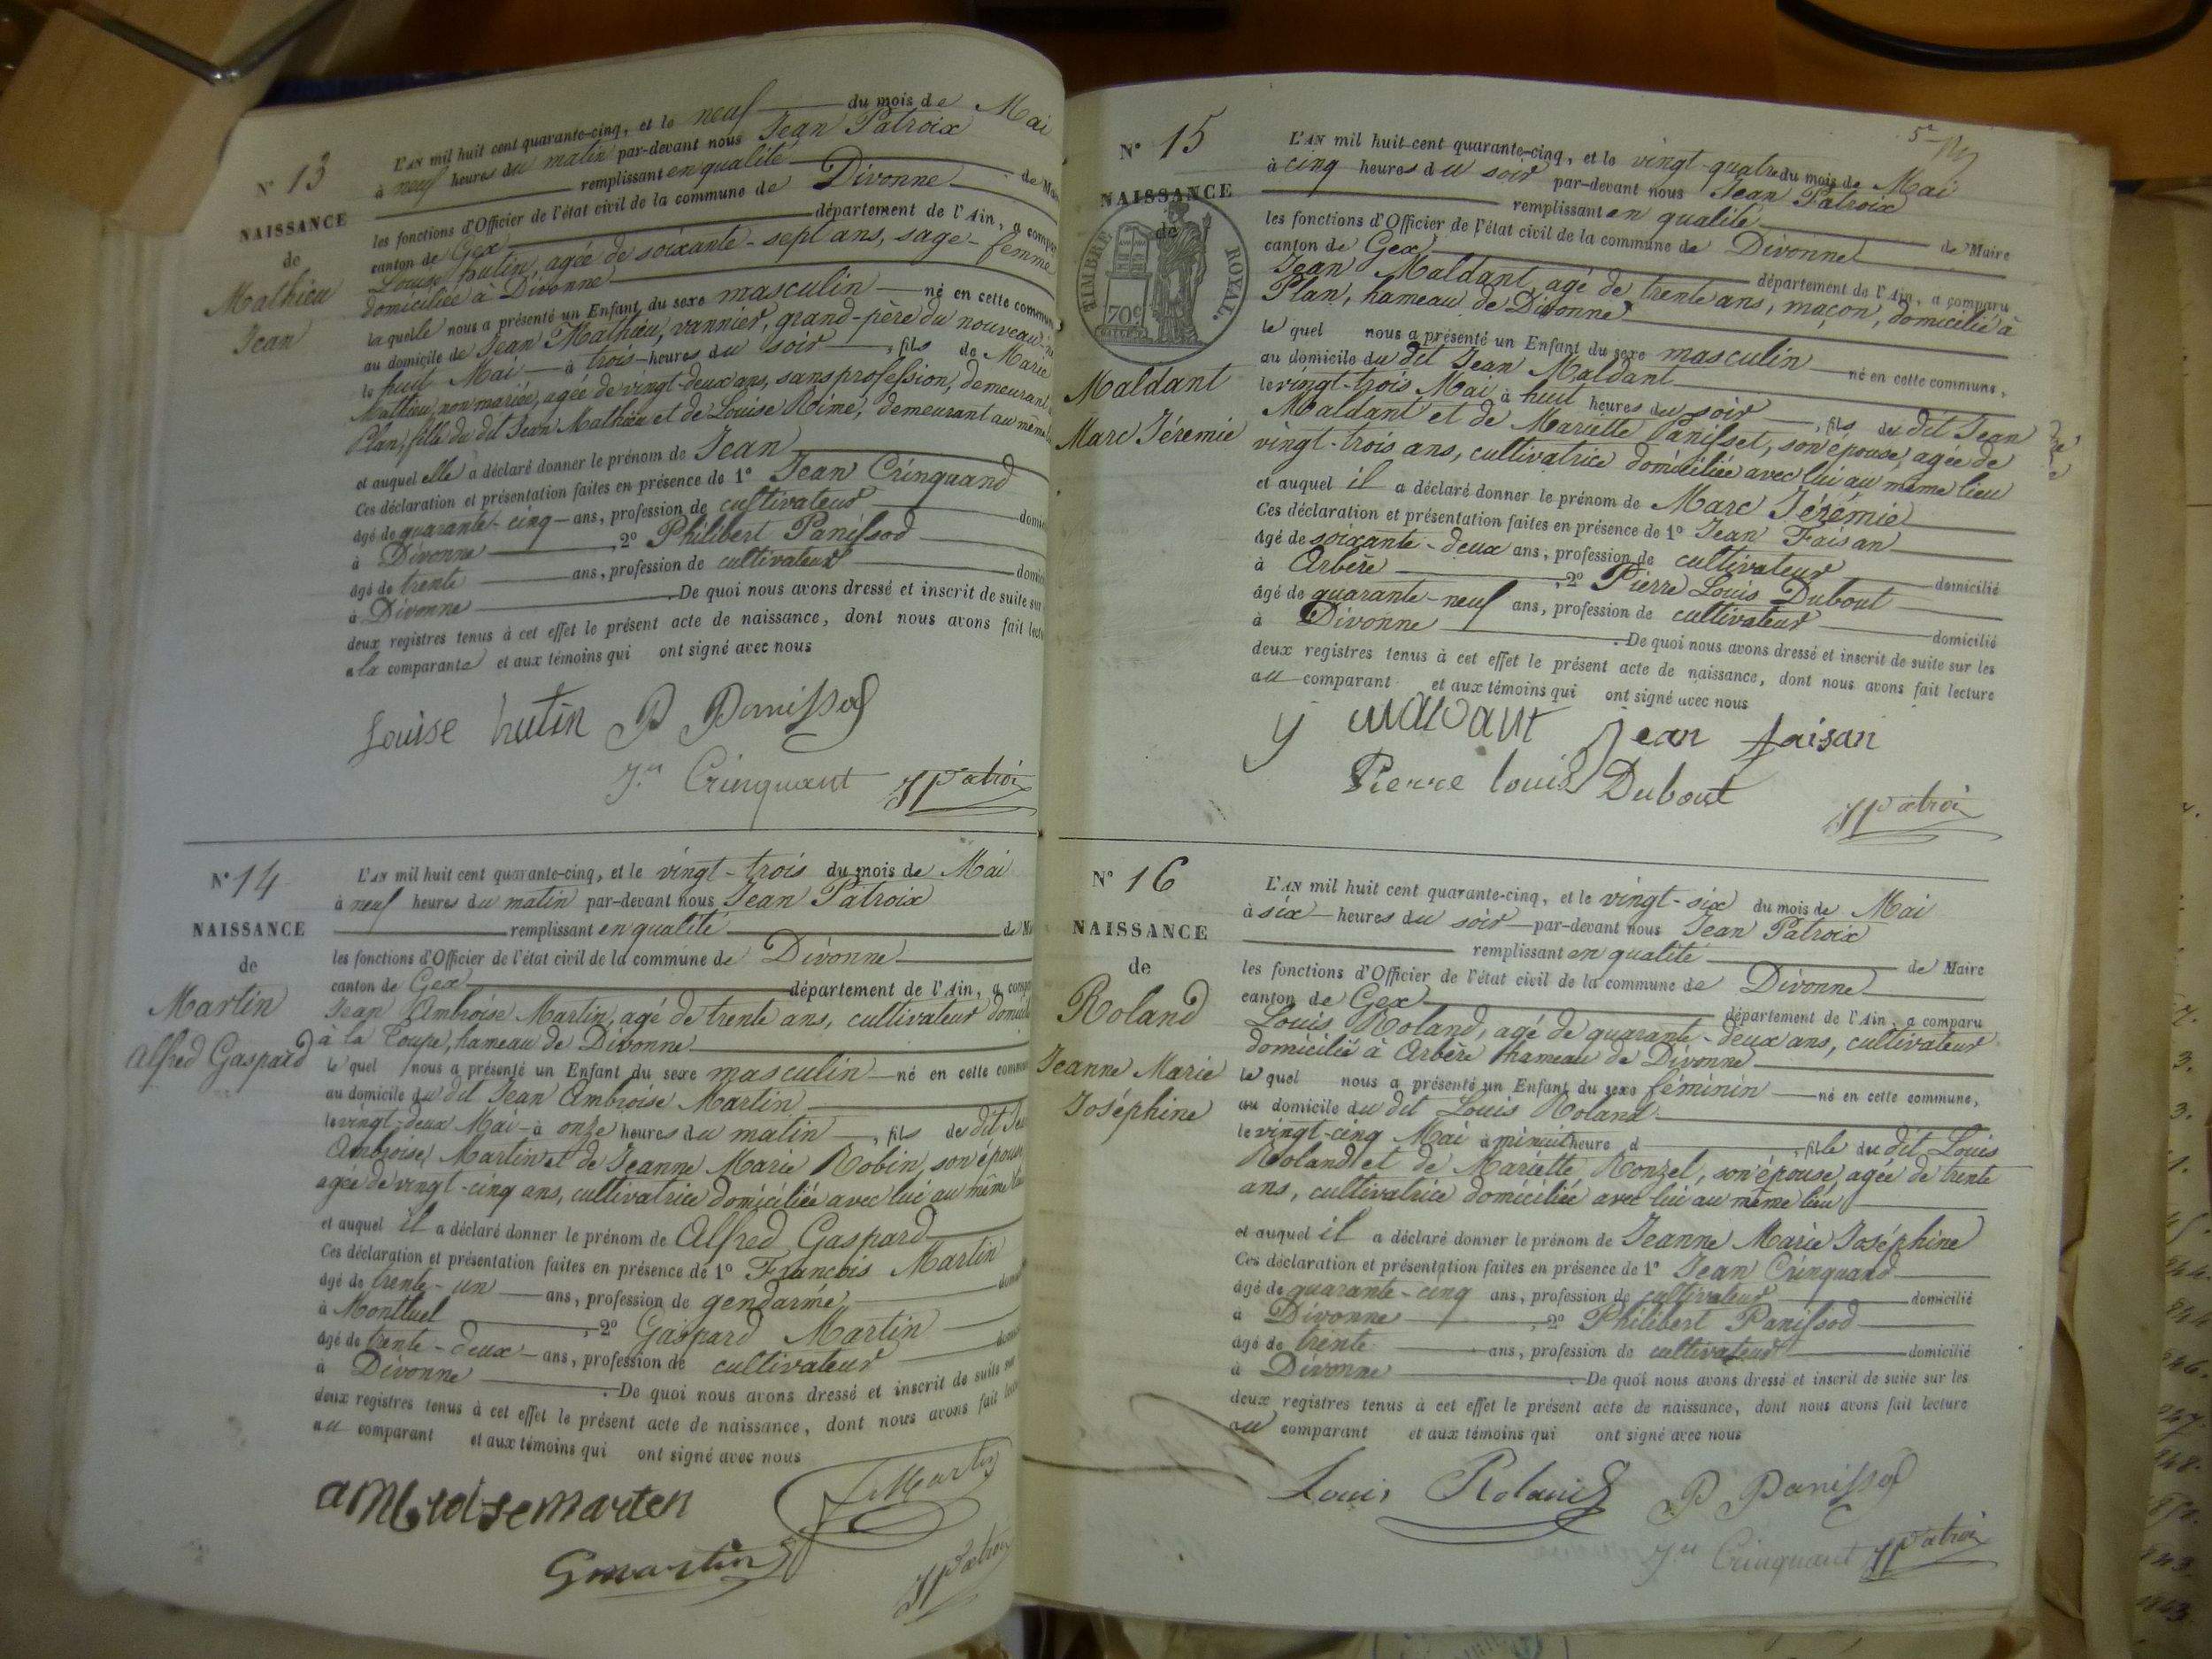 N° 13
NAISSANCE
de
Mathieu
Jean
L'AN mil huit cent quarante-cinq, et le neuf du mois de Mai
à neuf heures du matin par-devant nous Jean Patroix
remplissant en qualité de Ma
les fonctions d'Officier de l'état civil de la commune de Divonne
canton de Gex département de l'Ain, a compa
Louise hutin, agée de soixante-sept ans, sage-femme
domiciliée à Divonne
la quelle nous a présenté un Enfant du sexe masculin né en cette commun
au domicile de Jean Mathieu, vannier, grand-père du nouveau-
le huit Mai à trois heures du soir, fils de Marie
Mathieu, non mariée, agée de vingt-deux ans, sans profession, demeurant
Plan, fille du dit Jean Mathieu et de Louise Rimé, demeurant au même
et auquel elle a déclaré donner le prénom de Jean
Ces déclaration et présentation faites en présence de 1° Jean Crinquand
âgé de quarante-cinq ans, profession de cultivateur domi
à Divonne, 2° Philibert Panissod
âgé de trente ans, profession de cultivateur domi
à Divonne. De quoi nous avons dressé et inscrit de suite sur
deux registres tenus à cet effet le présent acte de naissance, dont nous avons fait lect
à la comparante et aux témoins qui ont signé avec nous
Louise hutin P Panissod
Jn Crinquant JPatroix
N° 14
NAISSANCE
de
Martin
Alfred Gaspard
L'AN mil huit cent quarante-cinq, et le vingt-trois du mois de Mai
à neuf heures du matin par-devant nous Jean Patroix
remplissant en qualité de M
les fonctions d'Officier de l'état civil de la commune de Divonne
canton de Gex département de l'Ain, a comp
Jean Ambroise Martin, agé de trente ans, cultivateur domicil
à la Coupe, hameau de Divonne
le quel nous a présenté un Enfant du sexe masculin né en cette commu
au domicile du dit Jean Ambroise Martin
le vingt-deux Mai à onze heures du matin, fils de dit Jea
Ambroise Martin et de Jeanne Marie Robin, son épouse
agée de vingt-cinq ans, cultivatrice domiciliée avec lui au même lieu
et auquel il a déclaré donner le prénom de Alfred Gaspard
Ces déclaration et présentation faites en présence de 1° François Martin
âgé de trente-un ans, profession de gendarme domi
à Montluel, 2° Gaspard Martin
âgé de trente-deux ans, profession de cultivateur domi
à Divonne. De quoi nous avons dressé et inscrit de suite sur
deux registres tenus à cet effet le présent acte de naissance, dont nous avons fait lec
au comparant et aux témoins qui ont signé avec nous
ambroisemarten F Martin
Gmartin JPatroix
N° 15
NAISSANCE
de
TIMBRE ROYAL.
70c
Maldant
Marc Jérémie
L'AN mil huit cent quarante-cinq, et le vingt-quatre du mois de Mai
à cinq heures du soir par-devant nous Jean Patroix
remplissant en qualité de Maire
les fonctions d'Officier de l'état civil de la commune de Divonne
canton de Gex département de l'Ain, a comparu
Jean Maldant, agé de trente ans, maçon, domicilié à
Plan, hameau de Divonne
le quel nous a présenté un Enfant du sexe masculin né en cette commune,
au domicile du dit Jean Maldant
le vingt-trois Mai à huit heures du soir, fils du dit Jean
Maldant et de Mariette Panisset, son épouse, agée de
vingt-trois ans, cultivatrice domiciliée avec lui au même lieu
et auquel il a déclaré donner le prénom de Marc Jérémie
Ces déclaration et présentation faites en présence de 1° Jean Faisan
âgé de soixante-deux ans, profession de cultivateur domicilié
à Arbère, 2° Pierre Louis Dubout
âgé de quarante-neuf ans, profession de cultivateur domicilié
à Divonne. De quoi nous avons dressé et inscrit de suite sur les
deux registres tenus à cet effet le présent acte de naissance, dont nous avons fait lecture
au comparant et aux témoins qui ont signé avec nous
J maldant Jean faisan
Pierre louis Dubout
JPatroix
N° 16
NAISSANCE
de
Roland
Jeanne Marie
Joséphine
L'AN mil huit cent quarante-cinq, et le vingt-six du mois de Mai
à six heures du soir par-devant nous Jean Patroix
remplissant en qualité de Maire
les fonctions d'Officier de l'état civil de la commune de Divonne
canton de Gex département de l'Ain, a comparu
Louis Roland, agé de quarante-deux ans, cultivateur
domicilié à Arbère hameau de Divonne
le quel nous a présenté un Enfant du sexe féminin né en cette commune,
au domicile du dit Louis Roland
le vingt-cinq Mai à minuit heure d, fille du dit Louis
Roland et de Mariette Ronzel, son épouse, agée de trente
ans, cultivatrice domiciliée avec lui au même lieu
et auquel il a déclaré donner le prénom de Jeanne Marie Joséphine
Ces déclaration et présentation faites en présence de 1° Jean Crinquand
âgé de quarante-cinq ans, profession de cultivateur domicilié
à Divonne, 2° Philibert Panissod
âgé de trente ans, profession de cultivateur domicilié
à Divonne. De quoi nous avons dressé et inscrit de suite sur les
deux registres tenus à cet effet le présent acte de naissance, dont nous avons fait lecture
au comparant et aux témoins qui ont signé avec nous
Louis Roland P Panissod
Jn Crinquant JPatroix